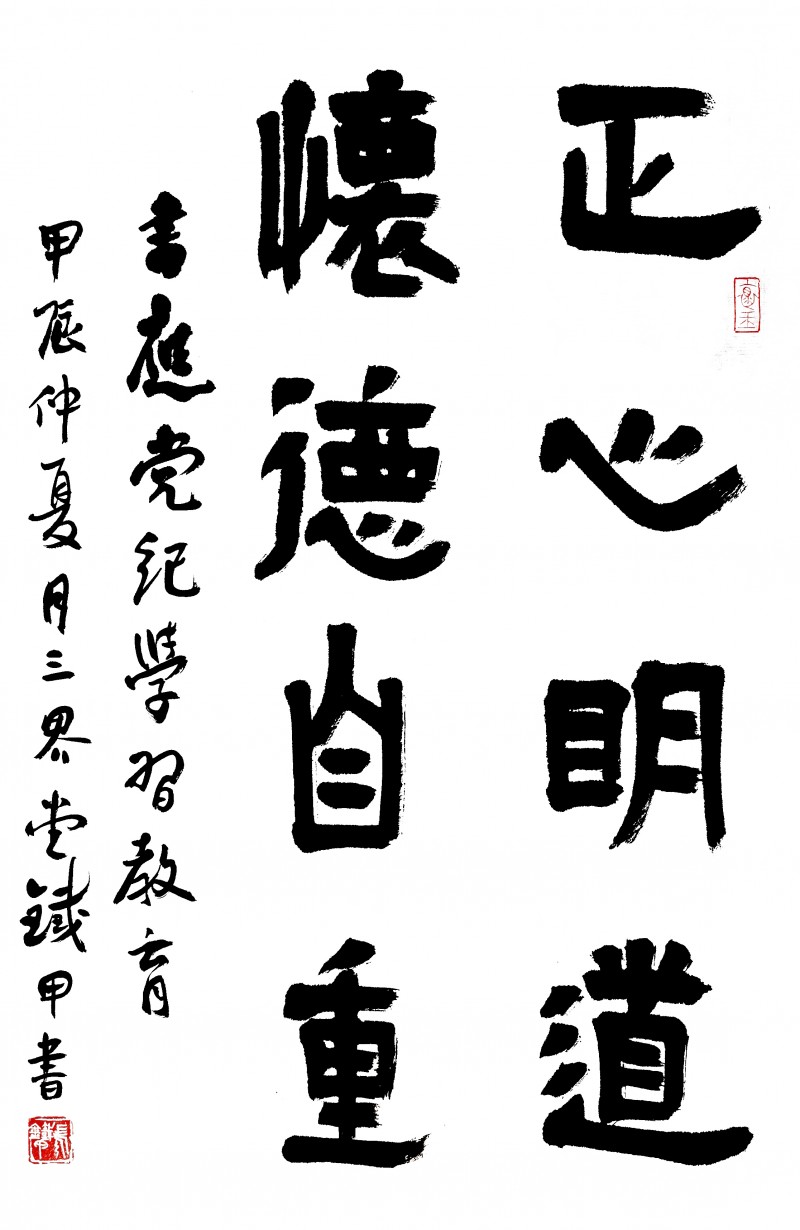 正心明道
懷德自重
書應党纪學習教育
甲辰仲夏月三界堂鐵甲書